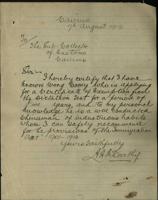 Cairns
7th August 19
To/
The Sub Collector
of Customs
Cairns
Sir
I hereby certify that I have
known Wong Gong who is applying
for a certificate of exemption from
the dictation test for a period of
years, and to my personal
knowledge he is a well conducted
chinaman of industrious habits
whom I can safely recommend
for the provisions of the Immigration
Act 1901-19
Yours faithfully